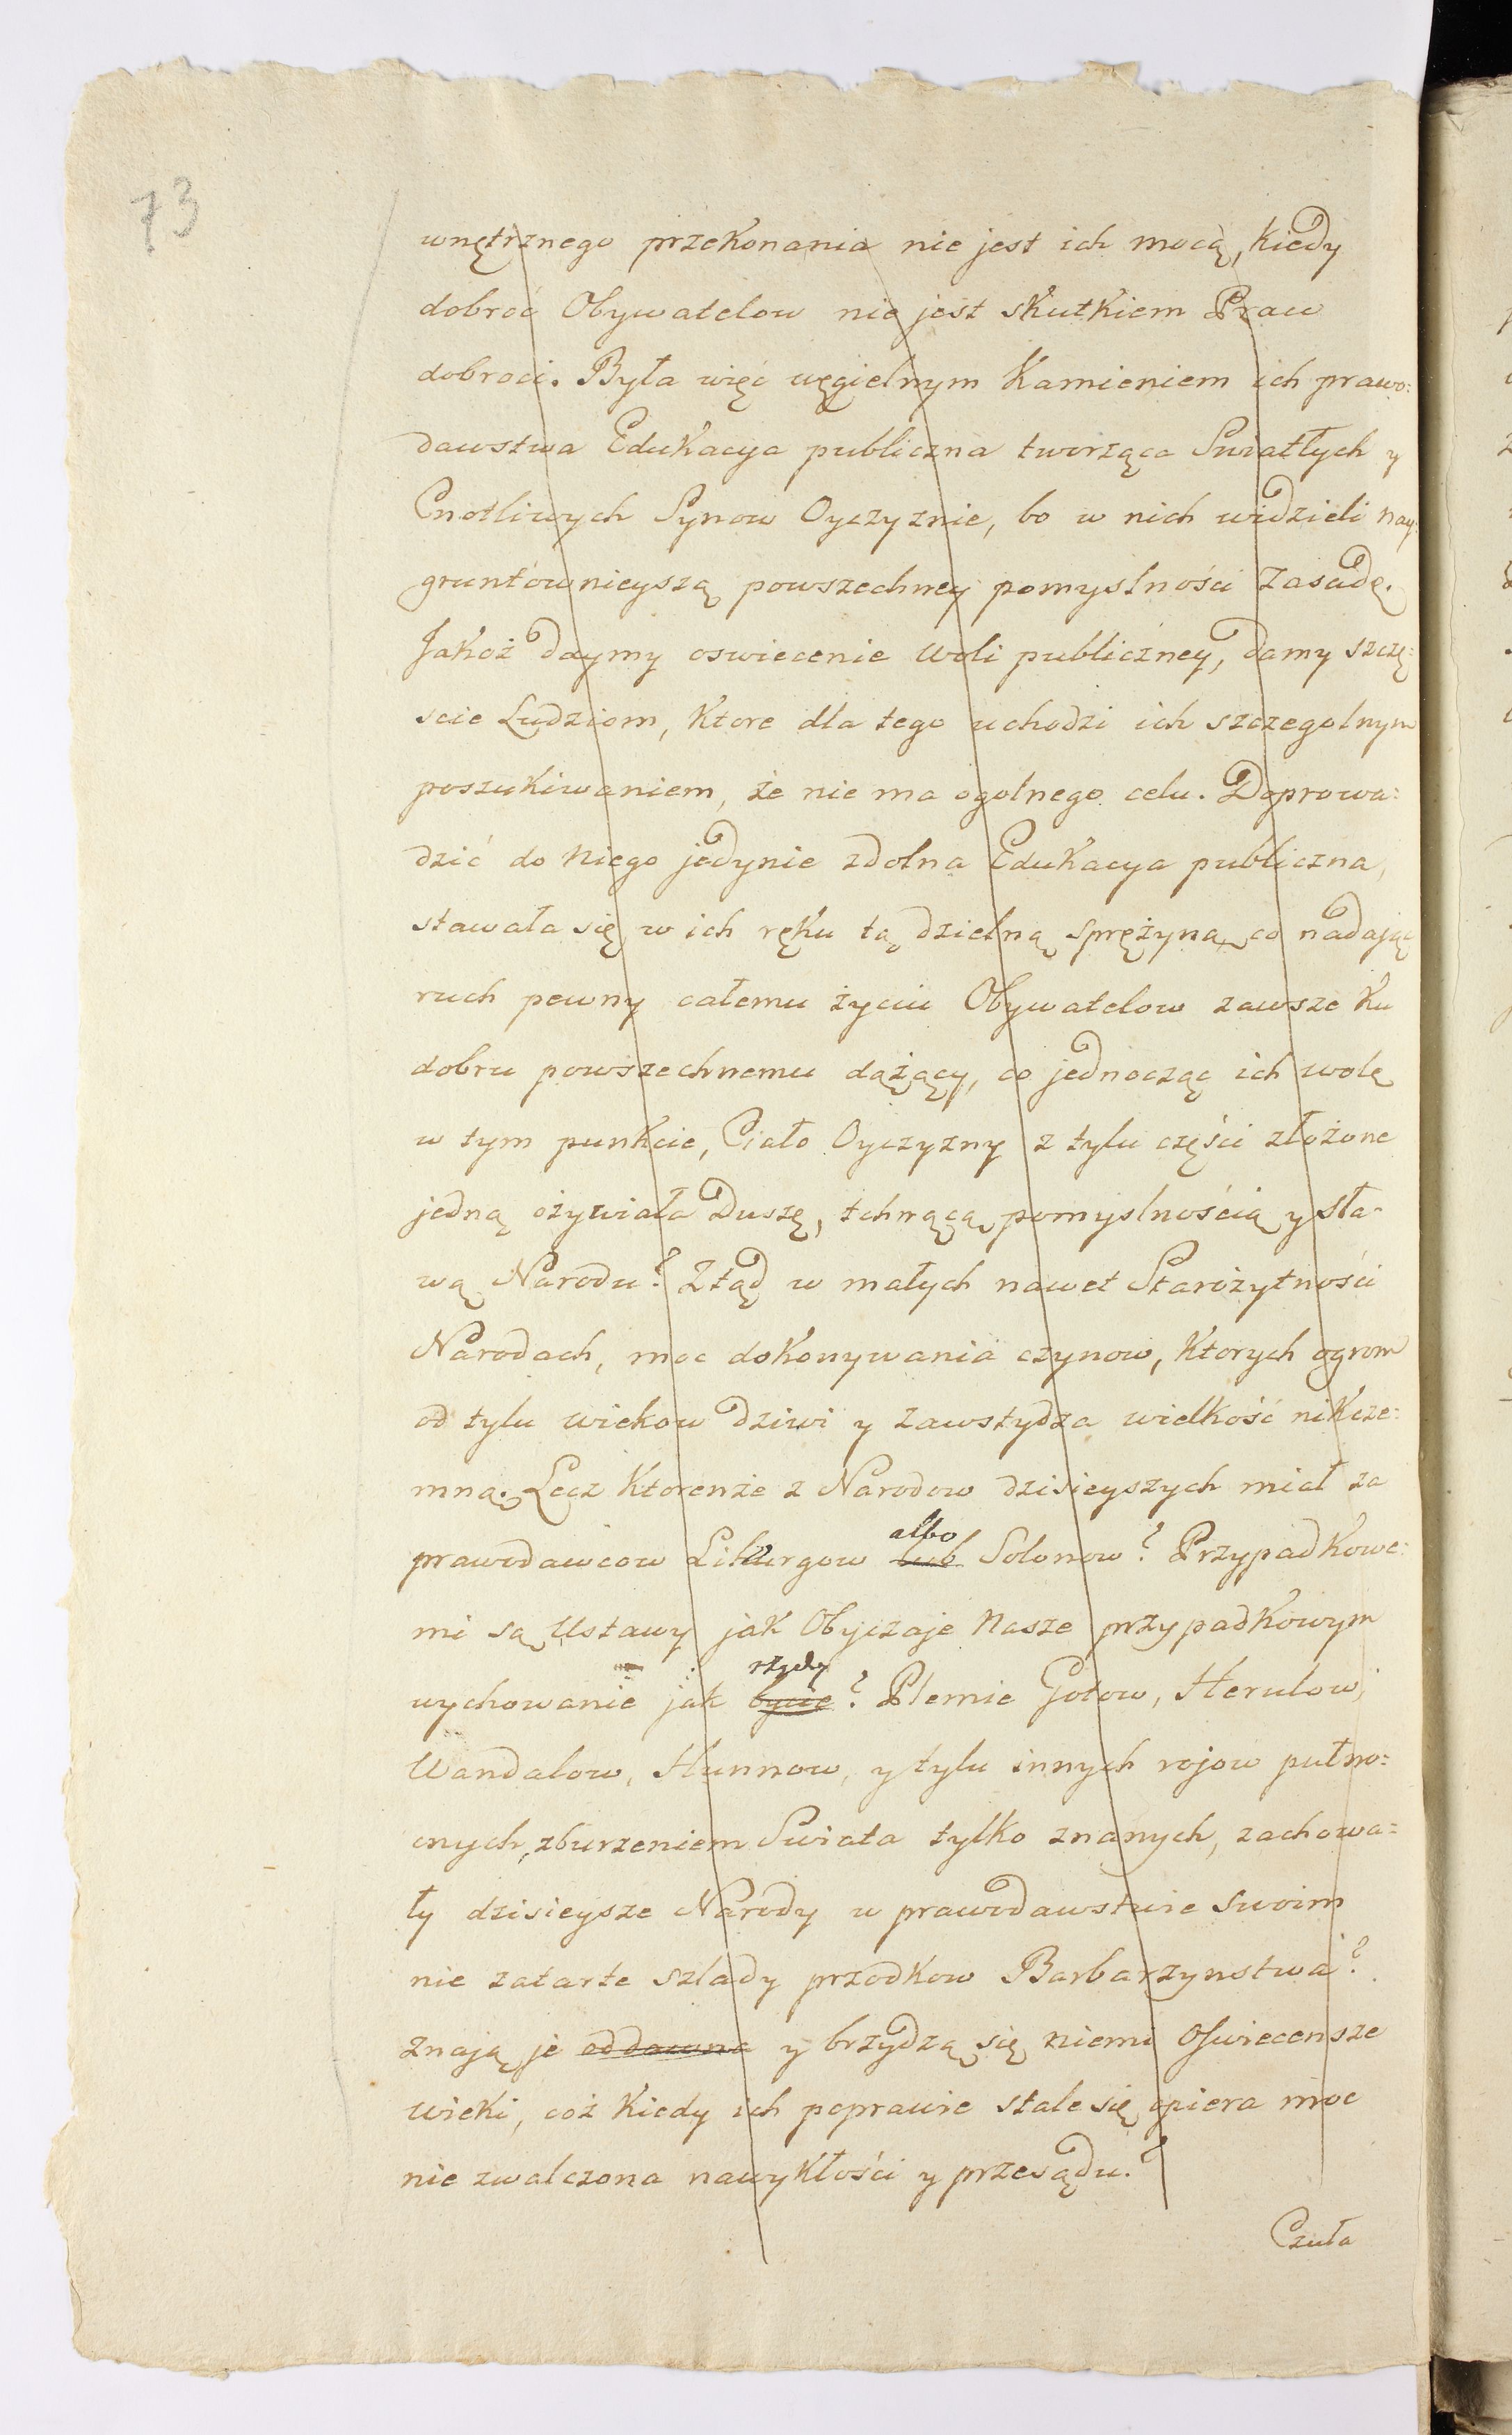 73
wnętrznego przekonania nie jest ich mocą, kiedy
dobroć Obywatelow nie jest skutkiem Praw
dobroci. Była więc węgielnym Kamieniem ich prawo:
dawstwa Edukacya publiczna tworząca Swiatłych y
Cnotliwych Synow Oyczyznie, bo w nich widzieli nay:
gruntównieyszą powszechney pomyslności zasadę.
Jakoż daymy oswiecenie woli publiczney, damy szczę:
scie Ludziom, ktore dla tego uchodzi ich szczegolnym
poszukiwaniem, że nie ma ogolnego celu. Doprowa:
dzić do niego jedynie zdolna Edukacya publiczna,
stawała się w ich ręku tą dzielną sprężyną, co nadając
ruch pewny całemu życiu Obywatelow zawsze ku
dobru powszechnemu dążący, co jednocząc ich wolę
w tym punkcie, Ciało Oyczyzny z tylu części złożone
jedną ożywiała Duszę, tchnącą pomyslnością y sła-
wą Narodu? Ztąd w małych nawet Starożytności
Narodach, moc dokonywania czynow, ktorych ogrom
od tylu wiekow dziwi y zawstydza wielkość nikcze:
mną. Lecz ktorenże z Narodow dzisieyszych miał za
albo
prawodawcow Likurgow lub Solonow? Przypadkowe:
mi są Ustawy jak Obyczaje nasze przypadkowym
rządy
wychowanie jak bycie? Plemie Gotow, Herulow,
Wandalow, Hunnow, y tylu innych rojow pułno:
cnych, zburzeniem Swiata tylko znanych, zachowa:
ły dzisieysze Narody w prawodawstwie swoim
nie zatarte szlady przodkow Barbarzynstwa?
znają je oddawna y brzydzą się niemi Oswiecensze
wieki, coż kiedy ich poprawie stale się opiera moc
nie zwalczona nawykłości y przesądu?
Czuła